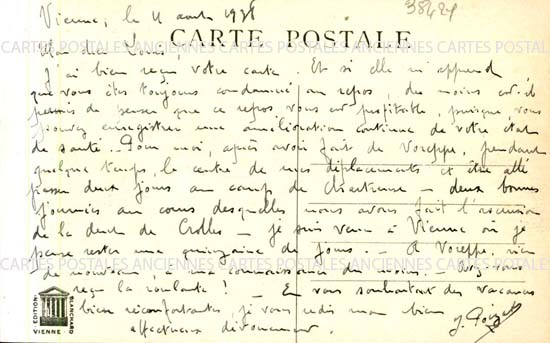 Vienne, le 11 août 1938
38424
CARTE POSTALE
Mon cher Louis,
J'ai bien reçu votre carte. Et si elle m'apprend
que vous êtes toujours condamné au repos, du moins est-il
permis de penser que ce repos vous est profitable, puisque vous
pouvez enregistrer une amélioration continue de votre état
de santé. – Pour moi, après avoir fait de Voreppe, pendant
quelque temps, le centre de mes déplacements et être allé
passer deux jours au camp de Chartreuse – deux bonnes
journées au cours desquelles nous avons fait l'ascension
de la dent de Crolles – je suis venu à Vienne où je
pense rester une quinzaine de jours. – A Voreppe, rien
de nouveau, à ma connaissance du moins. Avez-vous
reçu la roulante ! – En vous souhaitant des vacances
bien réconfortantes, je vous redis mon bien
affectueux dévouement.
EDITION BLANCHARD
VIENNE
CARTES POSTALES ANCIENNES